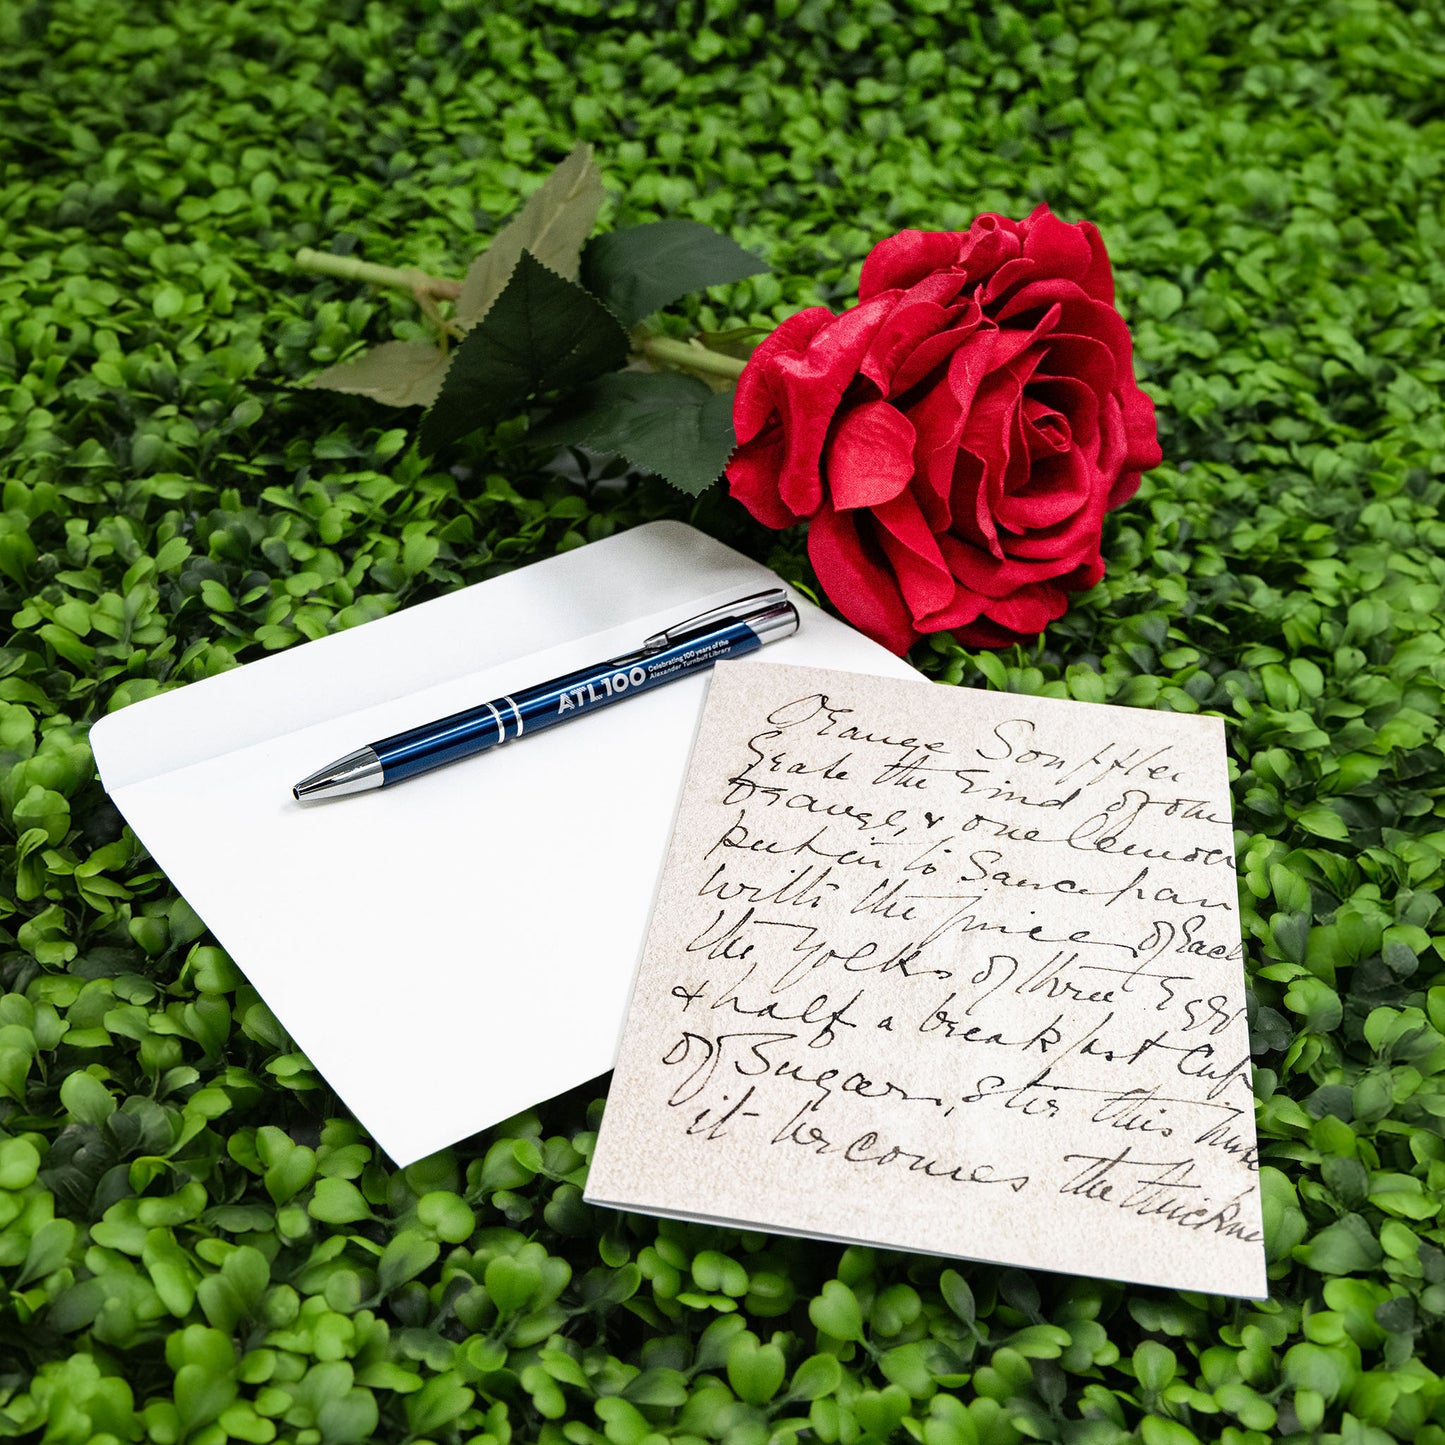 ATL100 Celebrating 100 years of the
Alexander Turnbull Library
Orange Souffler
Grate the Rind of one
Orange, & one lemon
put in to Saucepan
with the juice of Each
the yolks of three Eggs
& half a breakfast Cup
of Sugar, Stir this
it becomes the thickne